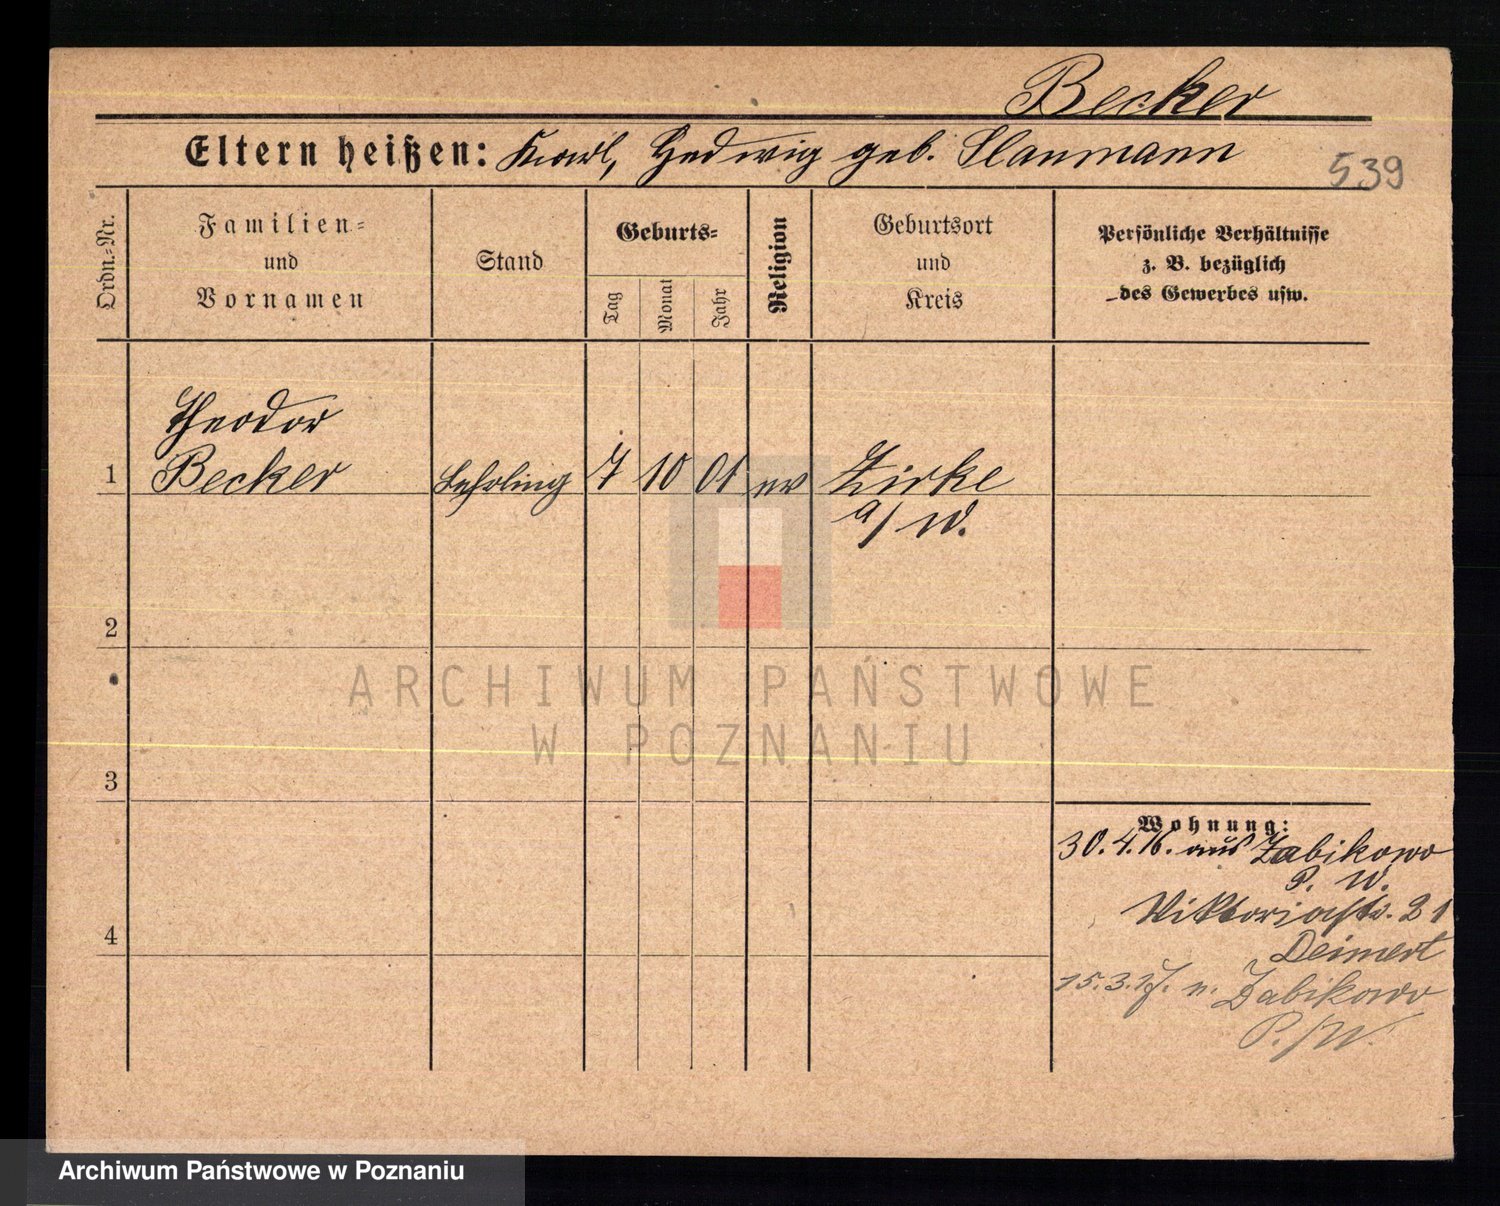 Becker
Eltern heißen: Karl, Hedwig geb. Slanmann
539
Ordn.-Nr.
Familien-
und
Vornamen
Stand
Geburts-
Tag
Monat
Jahr
Religion
Geburtsort
und
Kreis
Persönliche Verhältnisse
z. B. bezüglich
des Gewerbes usw.
Theodor
1 Becker Lehrling 7 10 01 ev Zirke
a/W.
2
3
4
Wohnung:
30.4.16. aus Zabikowo
P. W.
Viktoriastr. 21
Deimert
15.3.17. n. Zabikowo
P./W.
ARCHIWUM PAŃSTWOWE
W POZNANIU
Archiwum Państwowe w Poznaniu